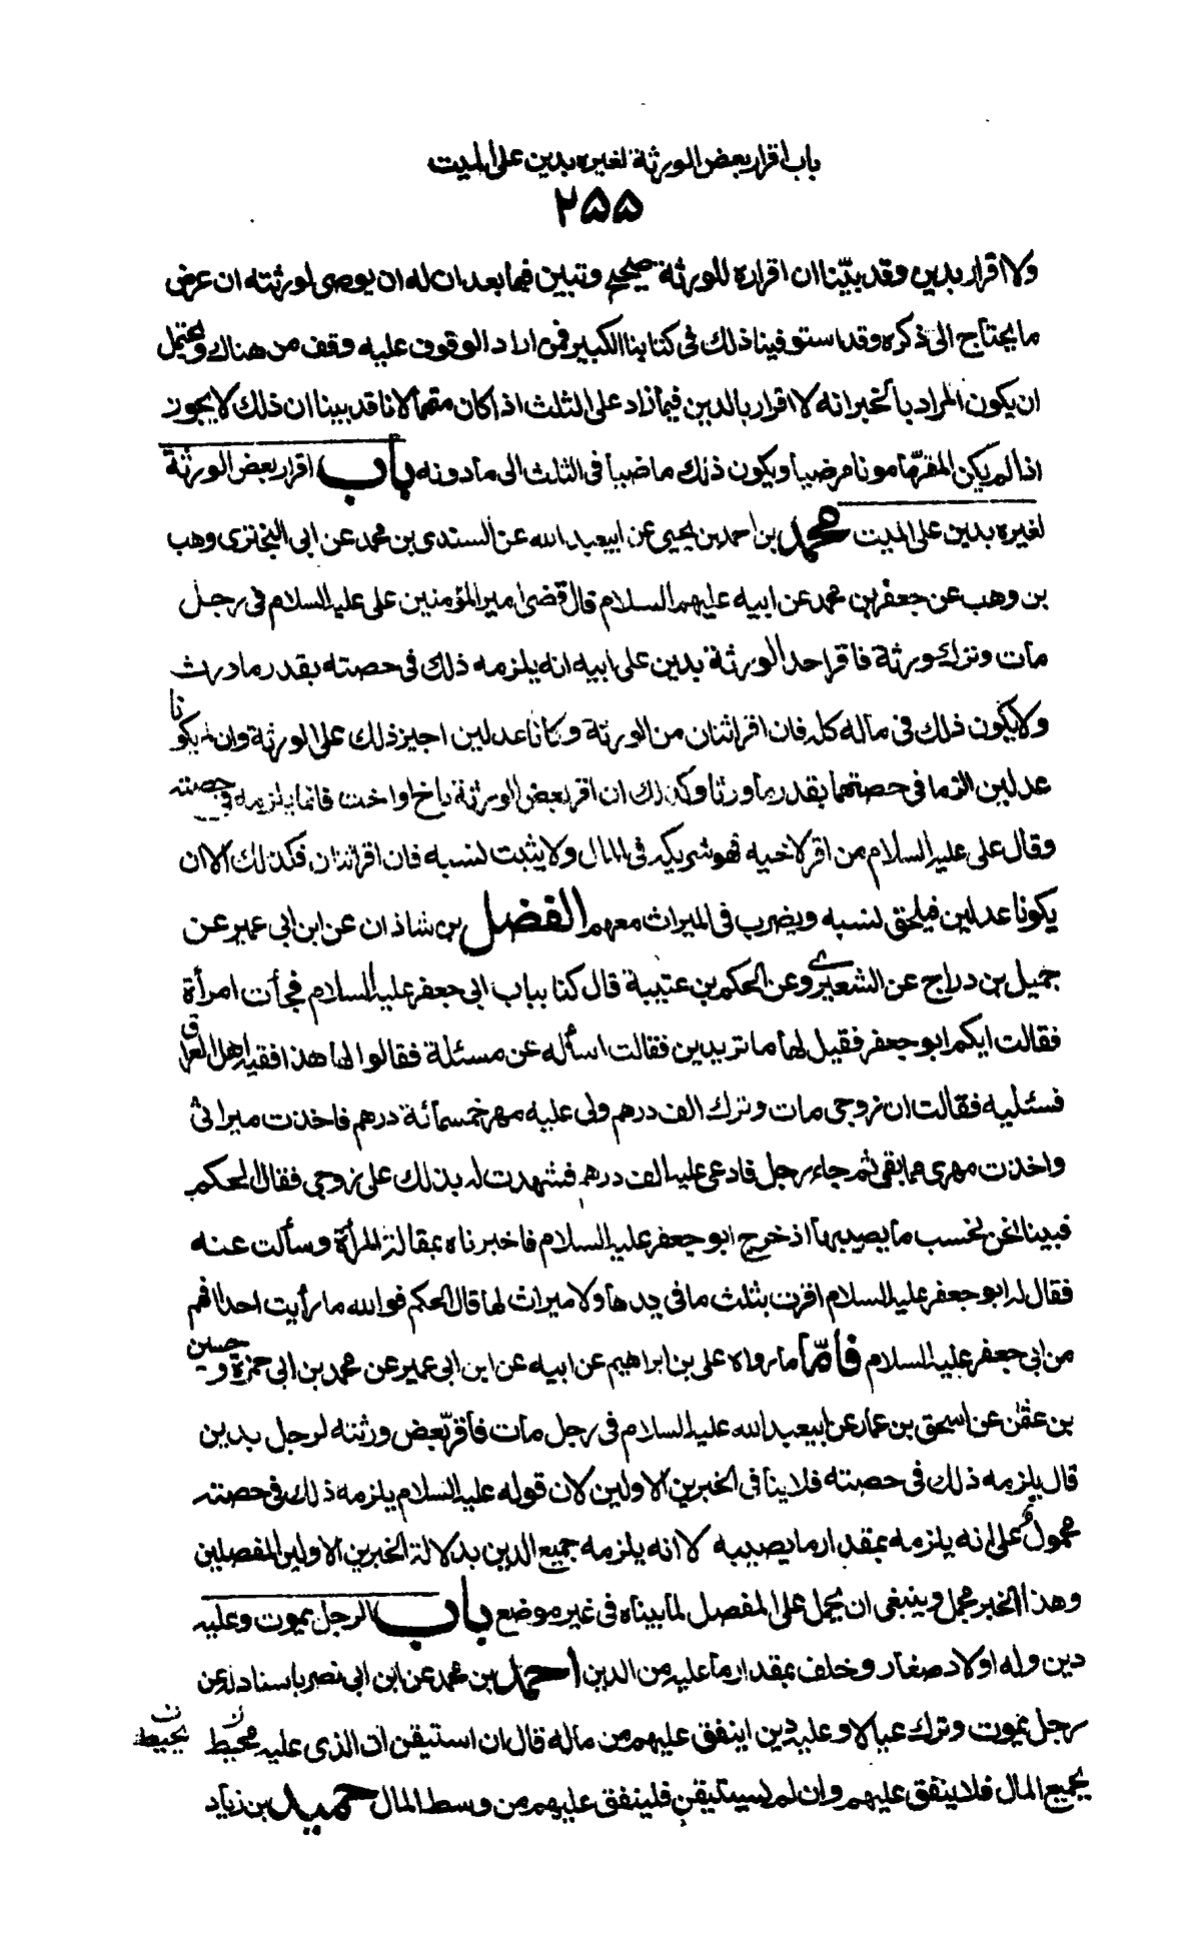 باب اقرار بعض الورثة لغيره بدين على الميت
٢٥٥
ولا اقرار بدين وقد بيّنا ان اقراره للورثة صحيح وتبين فيما بعد ان له ان يوصى لورثته ان عرض
ما يحتاج الى ذكره وقد استوفينا ذلك فى كتابنا الكبير فمن اراد الوقوف عليه وقف من هناك ويحتمل
ان يكون المراد بالخبر انه لا اقرار بالدين فيما زاد على الثلث اذا كان متهما لانا قد بينا ان ذلك لا يجوز
اذا لم يكن المقرّ مامونا مرضيا ويكون ذلك ماضيا فى الثلث الى ما دونه باب اقرار بعض الورثة
لغيره بدين على الميت محمد بن احمد بن يحيى عن ابيعبد الله عن السندى بن محمد عن ابى البخترى وهب
بن وهب عن جعفر بن محمد عن ابيه عليهم السلام قال قضى امير المؤمنين على عليه السلام فى رجل
مات وترك ورثة فاقر احد الورثة بدين على ابيه انه يلزمه ذلك فى حصته بقدر ما ورث
ولا يكون ذلك فى ماله كله فان اقر اثنان من الورثة وكانا عدلين اجيز ذلك على الورثة وان لم يكونا
عدلين الزما فى حصتهما بقدر ما ورثا وكذلك ان اقر بعض الورثة باخ او اخت فانما يلزمه فى حصته
وقال على عليه السلام من اقر لاخيه فهو شريكه فى المال ولا يثبت نسبه فان اقر اثنان فكذلك الا ان
يكونا عدلين فيلحق نسبه ويضرب فى الميراث معهم الفضل بن شاذان عن ابن ابى عمير عن
جميل بن دراج عن الشعيرى وعن الحكم بن عتيبة قال كنا بباب ابى جعفر عليه السلام فجأت امرأة
فقالت ايكم ابو جعفر فقيل لها ما تريدين فقالت اسأله عن مسئلة فقالوا لها هذا فقيه اهل العراق
فسئليه فقالت ان زوجى مات وترك الف درهم ولى عليه مهر خمسمائة درهم فاخذت ميراثى
واخذت مهرى مما بقى ثم جاء رجل فادعى عليه الف درهم فشهدت له بذلك على زوجى فقال الحكم
فبينا نحن نحسب ما يصيبها اذ خرج ابو جعفر عليه السلام فاخبرناه بمقالة المرأة وسألت عنه
فقال له ابو جعفر عليه السلام اقرت بثلث ما فى يدها ولا ميراث لها قال الحكم فوالله ما رأيت احدا افهم
من ابى جعفر عليه السلام فأمّا ما رواه على بن ابراهيم عن ابيه عن ابن ابى عمير عن محمد بن ابى حمزة وحسين
بن عثمن عن اسحق بن عمار عن ابيعبد الله عليه السلام فى رجل مات فأقرّ بعض ورثته لرجل بدين
قال يلزمه ذلك فى حصته فلا ينافى الخبرين الاولين لان قوله عليه السلام يلزمه ذلك فى حصته
محمول على انه يلزمه بمقدار ما يصيبه لا انه يلزمه جميع الدين بدلالة الخبرين الاولين المفصلين
وهذا الخبر مجمل وينبغى ان يحمل على المفصل لما بيناه فى غير موضع باب الرجل يموت وعليه
دين وله اولاد صغار وخلف بمقدار ما عليه من الدين احمد بن محمد عن ابن ابى نصر باسناد له عن
رجل يموت وترك عيالا وعليه دين اينفق عليهم من ماله قال ان استيقن ان الذى عليه محيط
يحيط ن
بجميع المال فلا ينفق عليهم وان لم يستيقن فلينفق عليهم من وسط المال حميد بن زياد